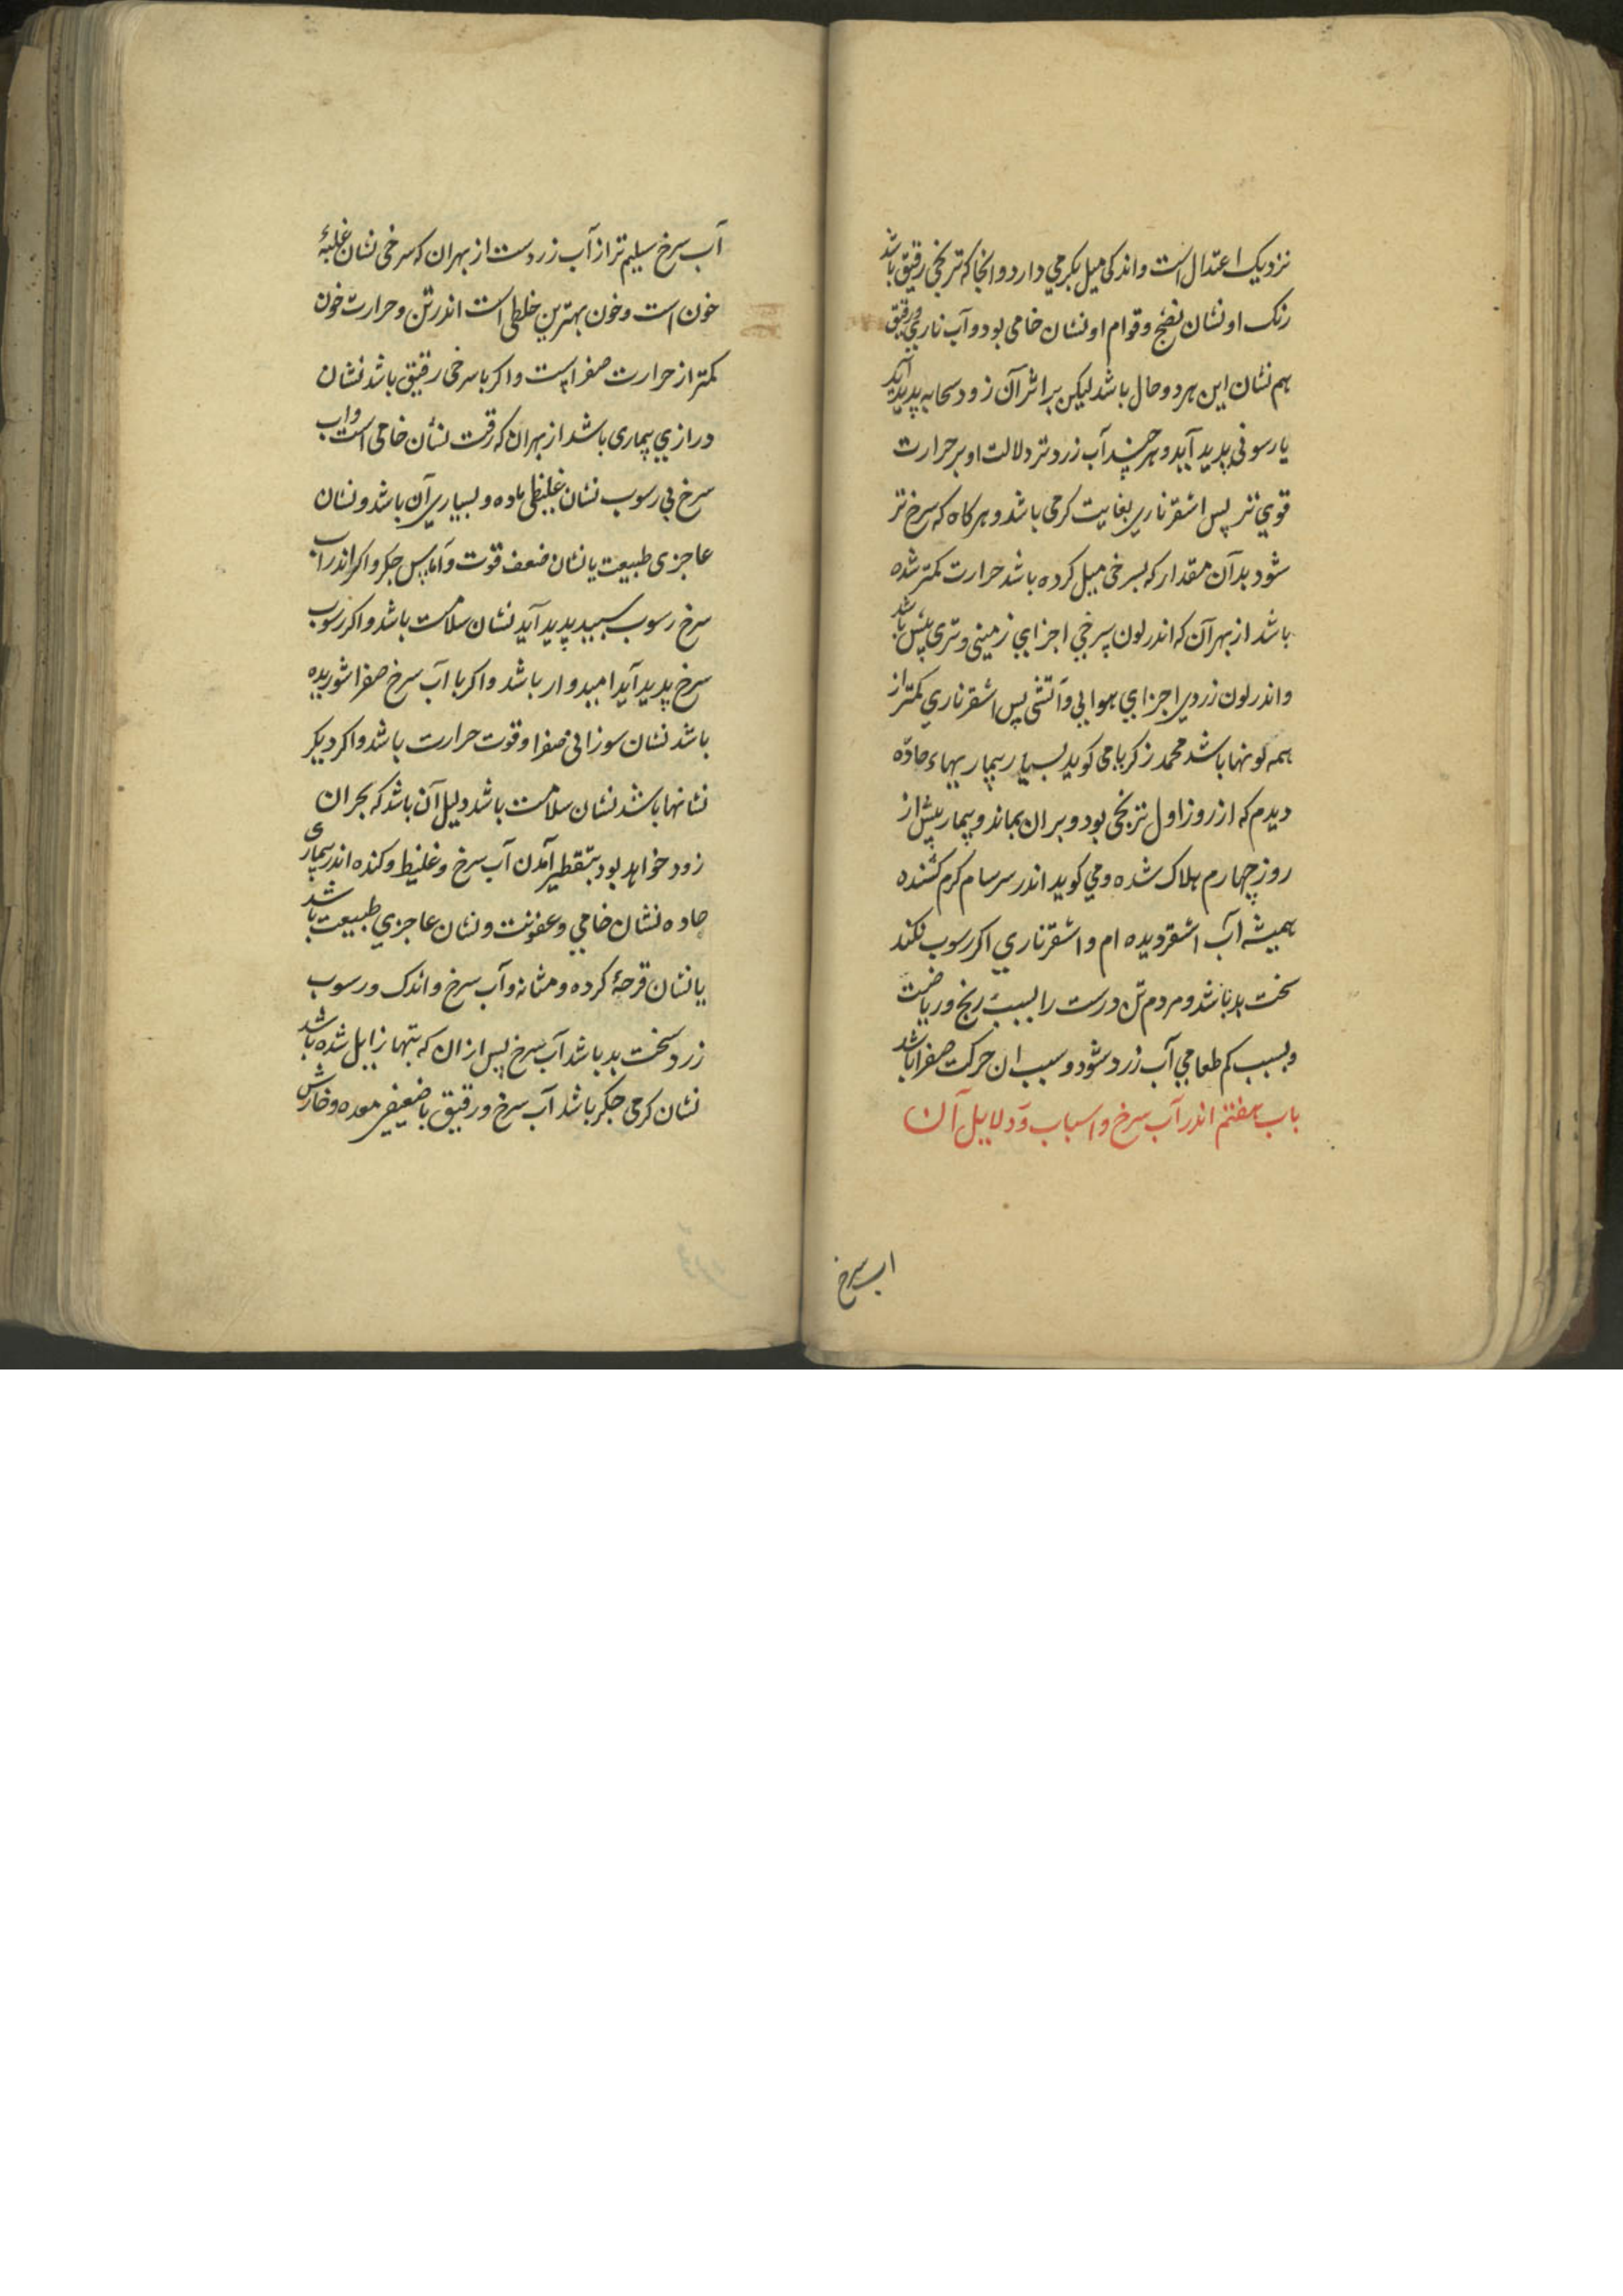 نزدیک اعتدال است و اندکی میل بکرمي دارد و انجا که ترنجی رقیق باشد
رنک او نشان نضج و قوام او نشان خامی بود و آب ناری رقیق
هم نشان این هر دو حال باشد لیکن بر اثر آن زود سحابه پدید آید
یا رسوبی پدید آید و هر چند آب زردتر دلالت او بر حرارت
قوي تر پس اشقر ناري بغایت کرمی باشد و هرکاه که سرخ تر
شود بدآن مقدار که بسرخی میل کرده باشد حرارت کمتر شده
باشد از بهر آن که اندر لون سرخي اجزاي زمینی و تري بیش باشد
و اندر لون زردي اجزاي هوایي و آتشی پس اشقر ناري کمتر از
همه کونها باشد محمد زکریا می کوید بسیار بیماریهاء حادّه
دیدم که از روز اول ترنجی بود و بر ان بماند و بیمار پیش از
روز چهارم هلاک شده و مي کوید اندر سرسام کرم کشنده
همیشه آب اشقر دیده ام و اشقر ناري اکر رسوب نکند
سخت بد باشد و مردم تن درست را بسبب رنج و ریاضت
و بسبب کم طعامي آب زرد شود و سبب ان حرکت صفرا باشد
باب هفتم اندر آب سرخ و اسباب و دلایل آن
اب سرخ
آب سرخ سلیم تر از آب زردست از بهر ان که سرخی نشان غلبۀ
خون است و خون بهترین خلطی است اندر تن و حرارت خون
کمتر از حرارت صفراست و اکر با سرخی رقیق باشد نشان
درازي بیماری باشد از بهر ان که رقت نشان خامی است و اب
سرخ بی رسوب نشان غلیظی ماده و بسیاري آن باشد و نشان
عاجزی طبیعت یا نشان ضعف قوت و آماس جکر و اکر اندر اب
سرخ رسوب سبید پدید آید نشان سلامت باشد و اکر رسوب
سرخ پدید آید امیدوار باشد و اکر با آب سرخ صفرا شوریده
باشد نشان سوزانی صفرا و قوت حرارت باشد و اکر دیکر
نشانها باشد نشان سلامت باشد دلیل آن باشد که بحران
زود خواهد بود بتقطیر آمدن آب سرخ و غلیظ و کنده اندر بیماری
حاده نشان خامي و عفونت و نشان عاجزي طبیعت باشد
یا نشان قرحۀ کرده و مثانه و آب سرخ و اندک و رسوب
زرد سخت بد باشد آب سرخ پس از ان که تبها زایل شده باشد
نشان کرمی جکر باشد آب سرخ و رقیق با ضعیفی معده و خارش